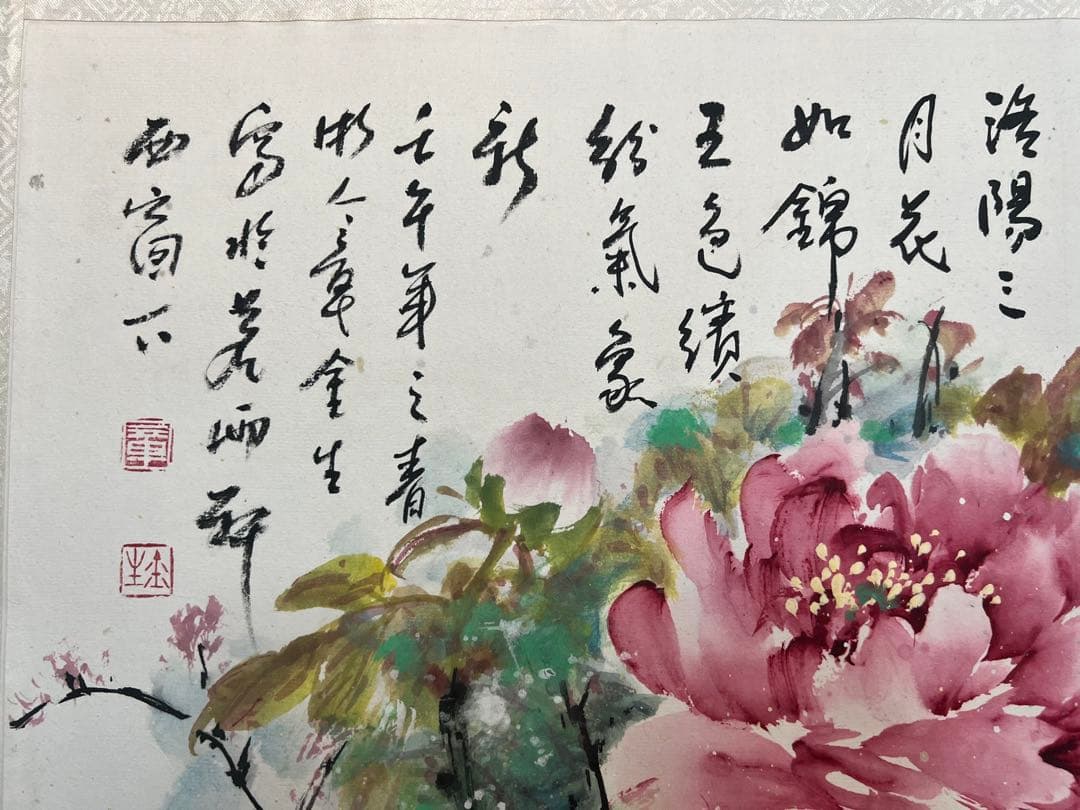 洛陽三
月花
如錦
五色繽
紛氣象
新
壬午年之春
浙 章金生
寫於若雨軒
西窗下
章
金生